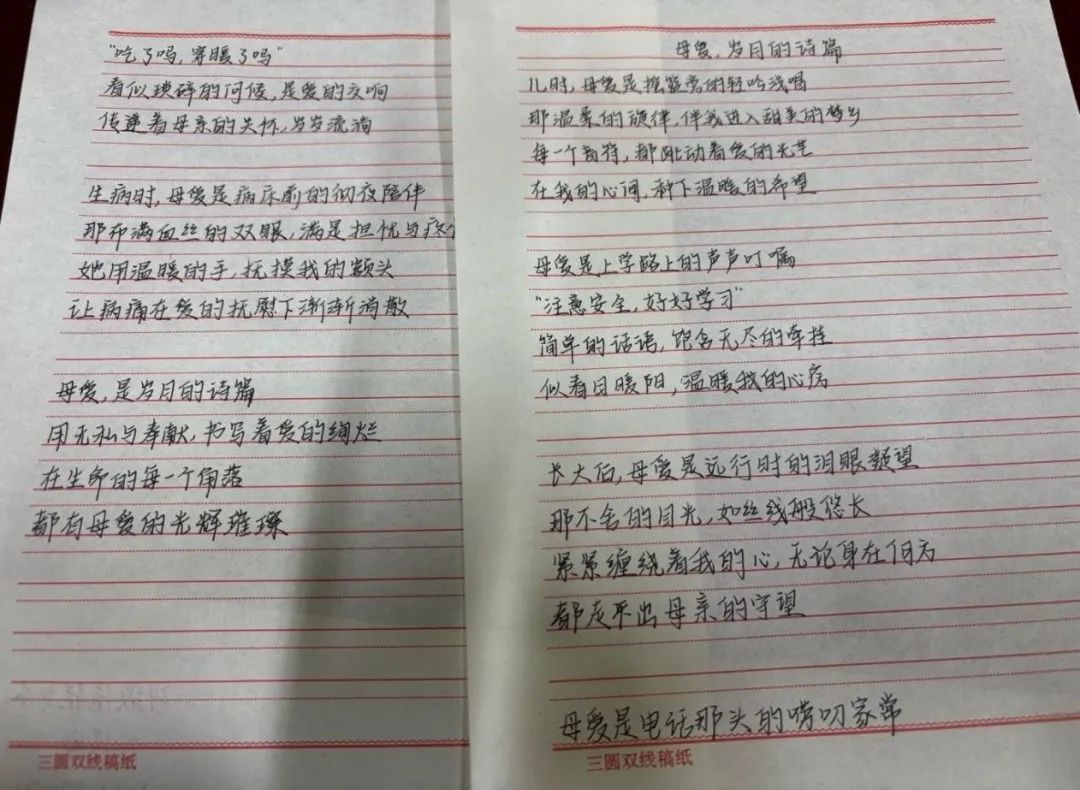 母爱，岁月的诗篇
儿时，母爱是摇篮旁的轻吟浅唱
那温柔的旋律，伴我进入甜美的梦乡
每一个音符，都跳动着爱的光芒
在我的心间，种下温暖的希望
母爱是上学路上的声声叮嘱
"注意安全，好好学习"
简单的话语，饱含无尽的牵挂
似春日暖阳，温暖我的心房
长大后，母爱是远行时的泪眼凝望
那不舍的目光，如丝线般悠长
紧紧缠绕着我的心，无论身在何方
都走不出母亲的守望
母爱是电话那头的唠叨家常
三圆双线稿纸
"吃了吗，穿暖了吗"
看似琐碎的问候，是爱的交响
传递着母亲的关怀，岁岁流淌
生病时，母爱是病床前的彻夜陪伴
那布满血丝的双眼，满是担忧与疼
她用温暖的手，抚摸我的额头
让病痛在爱的抚慰下渐渐消散
母爱，是岁月的诗篇
用无私与奉献，书写着爱的绚烂
在生命的每一个角落
都有母爱的光辉璀璨
三圆双线稿纸